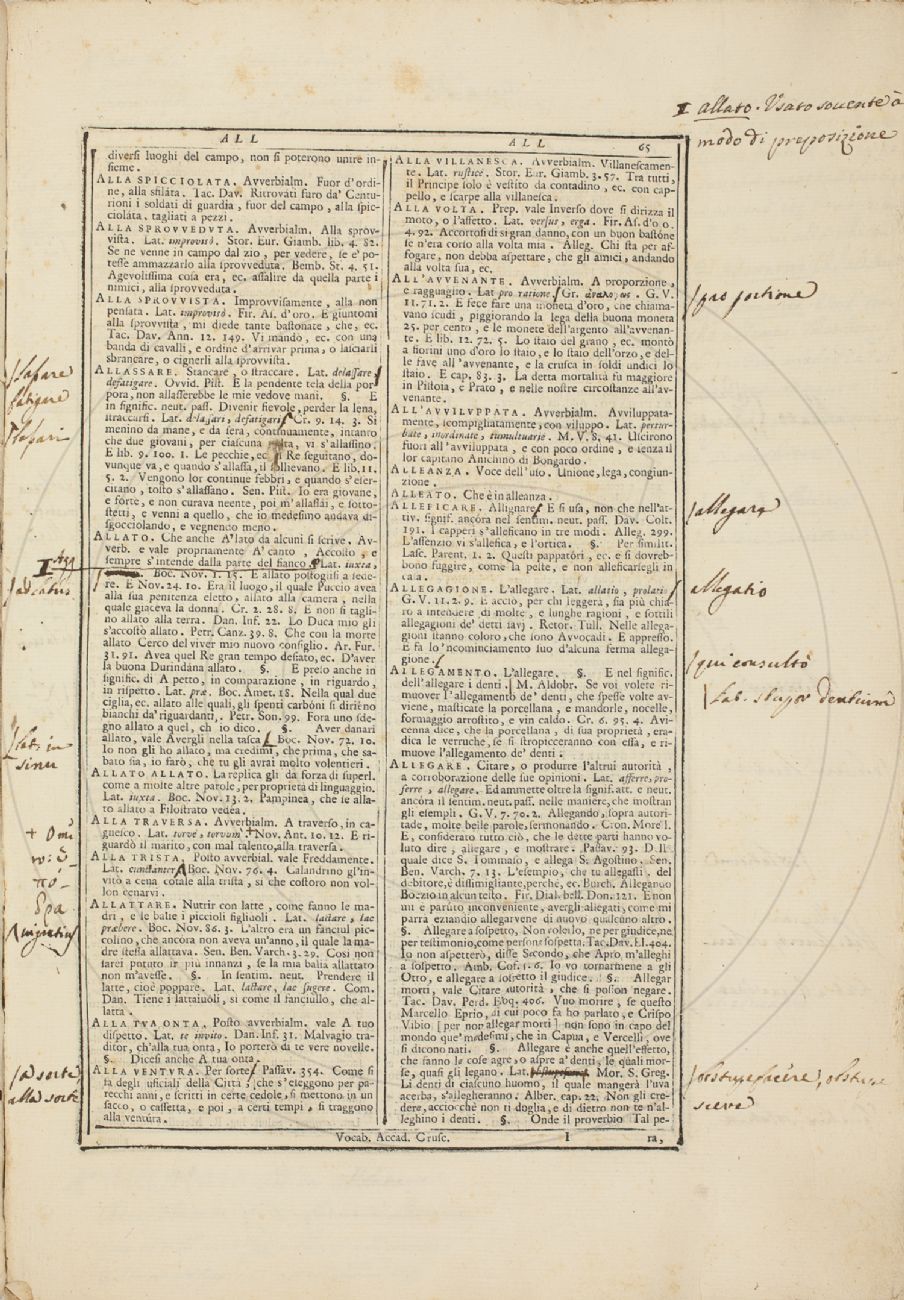 ALL
ALL 65
diversi luoghi del campo, non si poterono unire in-
sieme.
ALLA SPICCIOLATA. Avverbialm. Fuor d'ordi-
ne, alla sfilata. Tac. Dav. Ritrovati furo da' Centu-
rioni i soldati di guardia, fuor del campo, alla spic-
ciolata, tagliati a pezzi.
ALLA SPROVVEDUTA. Avverbialm. Alla sprov-
vista. Lat. improvisò. Stor. Eur. Giamb. lib. 4. 82.
Se ne venne in campo dal zio, per vedere, se e' po-
tesse ammazzarlo alla sprovveduta. Bemb. St. 4. 51.
Agevolissima cosa era, ec. assalire da quella parte i
nimici, alla sprovveduta.
ALLA SPROVVISTA. Improvvisamente, alla non
pensata. Lat. improvisò. Fir. As. d'oro. E giuntomi
alla sprovvista, mi diede tante bastonate, che, ec.
Tac. Dav. Ann. 12. 149. Vi mandò, ec. con una
banda di cavalli, e ordine d'arrivar prima, o lasciarli
sbrancare, o cignerli alla sprovvista.
ALLASSARE. Stancare, o straccare. Lat. delassare,
defatigare. Ovvid. Pist. E la pendente tela della por-
pora, non allasserebbe le mie vedove mani. §. E
in signific. neut. pass. Divenir fievole, perder la lena,
straccarsi. Lat. delassari, defatigari. Cr. 9. 14. 3. Si
menino da mane, e da sera, continuamente, intanto
che due giovani, per ciascuna volta, vi s'allassino.
E lib. 9. 100. 1. Le pecchie, ec. Re seguitano, do-
vunque va, e quando s'allassa, il sollievano. E lib. 11.
5. 2. Vengono lor continue febbri, e quando s'eser-
citano, tosto s'allassano. Sen. Pist. Io era giovane,
e forte, e non curava neente, poi m'allassai, e sotto-
stetti, e venni a quello, che io medesimo andava di-
sgocciolando, e vegnendo meno.
ALLATO. Che anche A'lato da alcuni si scrive. Av-
verb. e vale propriamente A' canto, Accosto, e
sempre s'intende dalla parte del fianco. Lat. iuxta,
Boc. Nov. 1. 15. E allato postoglisi a sede-
re. E Nov. 24. 10. Era il luogo, il quale Puccio avea
alla sua penitenza eletto, allato alla camera, nella
quale giaceva la donna. Cr. 2. 28. 8. E non si tagli-
no allato alla terra. Dan. Inf. 22. Lo Duca mio gli
s'accostò allato. Petr. Canz. 39. 8. Che con la morte
allato Cerco del viver mio nuovo consiglio. Ar. Fur.
31. 91. Avea quel Re gran tempo desiato, ec. D'aver
la buona Durindana allato. §. E preso anche in
signific. di A petto, in comparazione, in riguardo,
in rispetto. Lat. præ. Boc. Amet. 18. Nella qual due
ciglia, ec. allato alle quali, gli spenti carbóni si diriéno
bianchi da' riguardanti. Petr. Son. 99. Fora uno sde-
gno allato a quel, ch'io dico. §. Aver danari
allato, vale Avergli nella tasca. Boc. Nov. 72. 10.
Io non gli ho allato, ma credimi, che prima, che sa-
bato sia, io farò, che tu gli avrai molto volentieri.
ALLATO ALLATO. La replica gli da forza di superl.
come a molte altre parole, per proprietà di linguaggio.
Lat. iuxta. Boc. Nov. 13. 2. Pampinea, che se alla-
to allato a Filostrato vedea.
ALLA TRAVERSA. Avverbialm. A traverso, in ca-
gnesco. Lat. torvè, torvum. Nov. Ant. 10. 12. E ri-
guardò il marito, con mal talento, alla traversa.
ALLA TRISTA. Posto avverbial. vale Freddamente.
Lat. cunctanter. Boc. Nov. 76. 4. Calandrino gl'in-
vitò a cena cotale alla trista, sì che costoro non vol-
lon cenarvi.
ALLATTARE. Nutrir con latte, come fanno le ma-
dri, e le balie i piccioli figliuoli. Lat. lactare, lac
præbere. Boc. Nov. 86. 3. L'altro era un fanciul pic-
colino, che ancora non aveva un'anno, il quale la ma-
dre stessa allattava. Sen. Ben. Varch. 3. 29. Così non
sarei potuto ir più innanzi, se la mia balia allattato
non m'avesse. §. In sentim. neut. Prendere il
latte, cioè poppare. Lat. lactare, lac sugere. Com.
Dan. Tiene i lattaiuoli, sì come il fanciullo, che al-
latta.
ALLA TVA ONTA. Posto avverbialm. vale A tuo
dispetto. Lat. te invito. Dan. Inf. 31. Malvagio tra-
ditor, ch'alla tua onta, Io porterò di te vere novelle.
§. Dicesi anche A tua onta.
ALLA VENTVRA. Per sorte. Passav. 354. Come si
fa degli uficiali della Città, che s'eleggono per pa-
recchi anni, e scritti in certe cedole, si mettono in un
sacco, o cassetta, e poi, a certi tempi, si traggono
alla ventura.
ALLA VILLANESCA. Avverbialm. Villanescamen-
te. Lat. rusticè. Stor. Eur. Giamb. 3. 57. Tra tutti,
il Principe solo è vestito da contadino, ec. con cap-
pello, e scarpe alla villanesca.
ALLA VOLTA. Prep. vale Inverso dove si dirizza il
moto, o l'affetto. Lat. versus, erga. Fir. As. d'oro.
4. 92. Accortosi di sì gran danno, con un buon bastóne
se n'era corso alla volta mia. Alleg. Chi sta per af-
fogare, non debba aspettare, che gli amici, andando
alla volta sua, ec.
ALL'AVVENANTE. Avverbialm. A proporzione,
e ragguaglio. Lat. pro ratione. Gr. ἀναλόγως. G. V.
11. 71. 2. E fece fare una moneta d'oro, che chiama-
vano scudi, piggiorando la lega della buona moneta
25. per cento, e le monete dell'argento all'avvenan-
te. E lib. 12. 72. 5. Lo staio del grano, ec. montò
a fiorini uno d'oro lo staio, e lo staio dell'orzo, e del-
le fave all'avvenante, e la crusca in soldi undici lo
staio. E cap. 83. 3. La detta mortalità fu maggiore
in Pistoia, e Prato, e nelle nostre circostanze all'av-
venante.
ALL'AVVILVPPATA. Avverbialm. Avviluppata-
mente, scompigliatamente, con viluppo. Lat. pertur-
batè, inordinatè, tumultuariè. M. V. 8. 41. Uscirono
fuori all'avviluppata, e con poco ordine, e senza il
lor capitano Anichino di Bongardo.
ALLEANZA. Voce dell'uso. Unione, lega, congiun-
zione.
ALLEATO. Che è in alleanza.
ALLEFICARE. Allignare. E si usa, non che nell'at-
tiv. signif. ancóra nel sentim. neut. pass. Dav. Colt.
191. I capperi s'alleficano in tre modi. Alleg. 299.
L'assenzio vi s'allefica, e l'ortica. §. Per similit.
Lasc. Parent. 1. 2. Questi pappatóri, ec. e si dovreb-
bono fuggire, come la peste, e non alleficarsegli in
casa.
ALLEGAGIONE. L'allegare. Lat. allatio, prolatio.
G. V. 11. 2. 9. E acciò, per chi leggerà, sia più chia-
ro a intendere di molte, e lunghe ragioni, e sottili
allegagioni de' detti savj. Retor. Tull. Nelle allega-
gioni stanno coloro, che sono Avvocadi. E appresso.
E fa lo 'ncominciamento suo d'alcuna ferma allega-
gione.
ALLEGAMENTO. L'allegare. §. E nel signific.
dell'allegare i denti. M. Aldobr. Se voi volete ri-
muover l'allegamento de' denti, che spesse volte av-
viene, masticate la porcellana, e mandorle, nocelle,
formaggio arrostito, e vin caldo. Cr. 6. 95. 4. Avi-
cenna dice, che la porcellana, di sua proprietà, era-
dica le verruche, se si stropicceranno con essa, e ri-
muove l'allegamento de' denti.
ALLEGARE. Citare, o produrre l'altrui autorità,
a corroborazione delle sue opinioni. Lat. afferre, pro-
ferre, allegare. Ed ammette oltre la signif. att. e neut.
ancóra il sentim. neut. pass. nelle maniere, che mostran
gli esempli. G. V. 7. 70. 2. Allegando, sopra autori-
tade, molte belle parole, sermonando. Cron. Morell.
E, considerato tutto ciò, che le dette parti hanno vo-
luto dire, allegare, e mostrare. Passav. 93. Della
quale dice S. Tommaso, e allega S. Agostino. Sen.
Ben. Varch. 7. 13. L'esempio, che tu allegasti, del
debitore, è dissimigliante, perchè, ec. Burch. Allegando
Boezio in alcun testo. Fir. Dial. bell. Don. 321. E non
mi è paruto inconveniente, avergli allegati, come mi
parrà eziandio allegarvene di nuovo qualcuno altro.
§. Allegare a sospetto, Non volerlo, ne per giudice, ne
per testimonio, come persone sospetta. Tac. Dav. St. 404.
Io non aspetterò, disse Secondo, che Apro m'alleghi
a sospetto. Amb. Cof. 1. 6. Io vo tornarmene a gli
Otto, e allegare a sospetto il giudice. §. Allegar
morti, vale Citare autorità, che si posson negare.
Tac. Dav. Perd. Eloq. 406. Vuo morire, se questo
Marcello Eprio, di cui poco fa ho parlato, e Crispo
Vibio [per non allegar morti] non sono in capo del
mondo que' medesimi, che in Capua, e Vercelli, ove
si dicono nati. §. Allegare è anche quell'effetto,
che fanno le cose agre, o aspre a' denti, le quali mor-
se, quasi gli legano. Lat. Mor. S. Greg.
Li denti di ciascuno huomo, il quale mangerà l'uva
acerba, s'allegheranno. Alber. cap. 22. Non gli cre-
dere, acciocchè non ti doglia, e di dietro non te n'al-
leghino i denti. §. Onde il proverbio Tal pe-
Vocab. Accad. Crusc. I ra,
allato. Usato sovente à
modo di preposizione
pro portione
allegare
allegatio
qui consultò
Lat. stupor dentium
obstupefacere, obstupe
lassare
fatigare
lassari
ad latus
Lat. in
sinu
à sorte
alla sorte